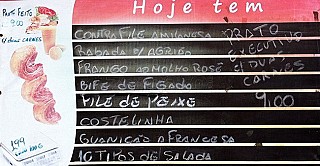 Hoje tem
PRATO FEITO
9,00
CONTRA FILÉ A MILANESA
RABADA C/ AGRIÃO
FRANGO AO MOLHO ROSÉ
BIFE DE FIGADO
FILÉ DE PEIXE
COSTELINHA
GUARNIÇÃO A FRANCESA
10 TIPOS DE SALADA
PRATO
EXECUTIVO
C/ DUAS
CARNES
9,00
1,99